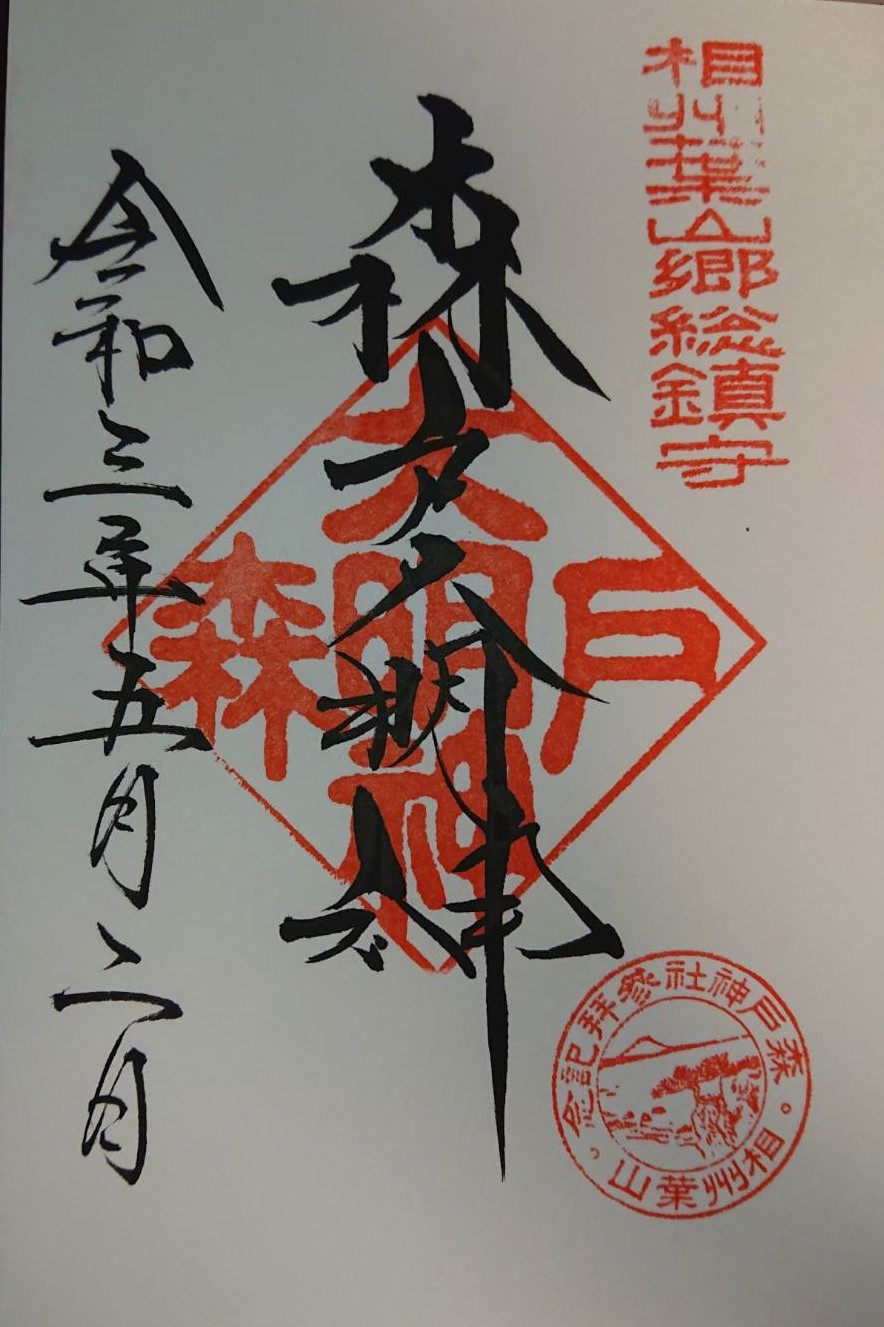 相州葉山郷総鎮守
森戸大明神
森戸大明神
森戸神社参拝記念。相州葉山。
令和三年五月二日